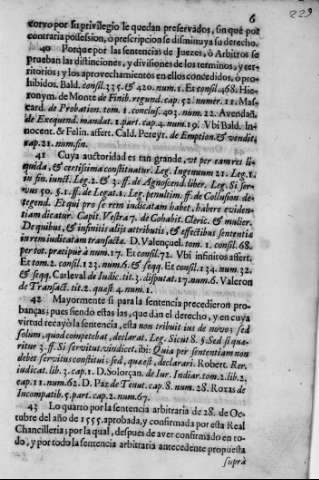 6
223
corro por su privilegio le quedan preservados, sin que por
contraria possession, o prescripcion se disminuya su derecho.
40 Porque por las sentencias de Juezes, ò Arbitros se
prueban las distinciones, y divisiones de los terminos, y ter-
ritorios; y los aprovechamientos en ellos concedidos, ò pro-
hibidos. Bald. consil. 335. & 420. num. 1. Et consil. 468. Hie-
ronym. de Monte de Finib. regund. cap. 52. numer. 11. Mas-
card. de Probation. tom. 1. conclus. 403. num. 22. Avendañ.
de Exequend. mandat. 1. part. cap. 4. num. 19. Vbi Bald. In-
nocent. & Felin. assert. Cald. Pereyr. de Emption. & vendit.
cap. 21. num. fin.
41 Cuya auctoridad es tan grande, ut per eam res li-
quida, & certissima constituatur. Leg. Ingenuum 21. Leg. 1.
in fin. junct. Leg. 2. & 3. ff. de Agnoscend. liber. Leg. Si ser-
vus 50. §. 1. ff. de Legat. 1. Leg. penultim. ff. de Collusion. de-
tegend. Et qui pro se rem iudicatam habet, habere eviden-
tiam dicatur. Capit. Vestra 7. de Cohabit. Cleric. & mulier.
De quibus, & infinitis alijs attributis, & effectibus sententiæ
in rem iudicatam transactæ. D. Valençuel. tom. 1. consil. 68.
per tot. præcipuè à num. 17. Et consil. 72. Vbi infinitos assert.
Et tom. 2. consil. 123. num. 6. & seqq. Et consil. 134. num. 32.
& seqq. Carleval de Iudic. tit. 3. disputat. 17. num. 6. Valeron
de Transact. tit. 2. quæst. 4. num. 1.
42 Mayormente si para la sentencia precedieron pro-
banças; pues siendo estas las, que dàn el derecho, y en cuya
virtud recayò la sentencia, esta non tribuit ius de novo; sed
solùm, quod competebat, declarat. Leg. Sicut 8. §. Sed si quæ-
ritur 3. ff. Si servitus. vindicet. ibi: Quia per sententiam non
debet servitus constitui; sed, quæ est, declarari. Robert. Rer.
iudicat. lib. 3. cap. 1. D. Solorçan. de Iur. Indiar. tom. 2. lib. 2.
cap. 11. num. 62. D. Paz de Tenut. cap. 8. num. 28. Roxas de
Incompatib. 5. part. cap. 2. num. 67.
43 Lo quarto por la sentencia arbitraria de 28. de Oc-
tubre del año de 1555. aprobada, y confirmada por esta Real
Chancilleria; por la qual, despues de aver confirmado en to-
do, y por todo la sentencia arbitraria antecedente propuesta
supra